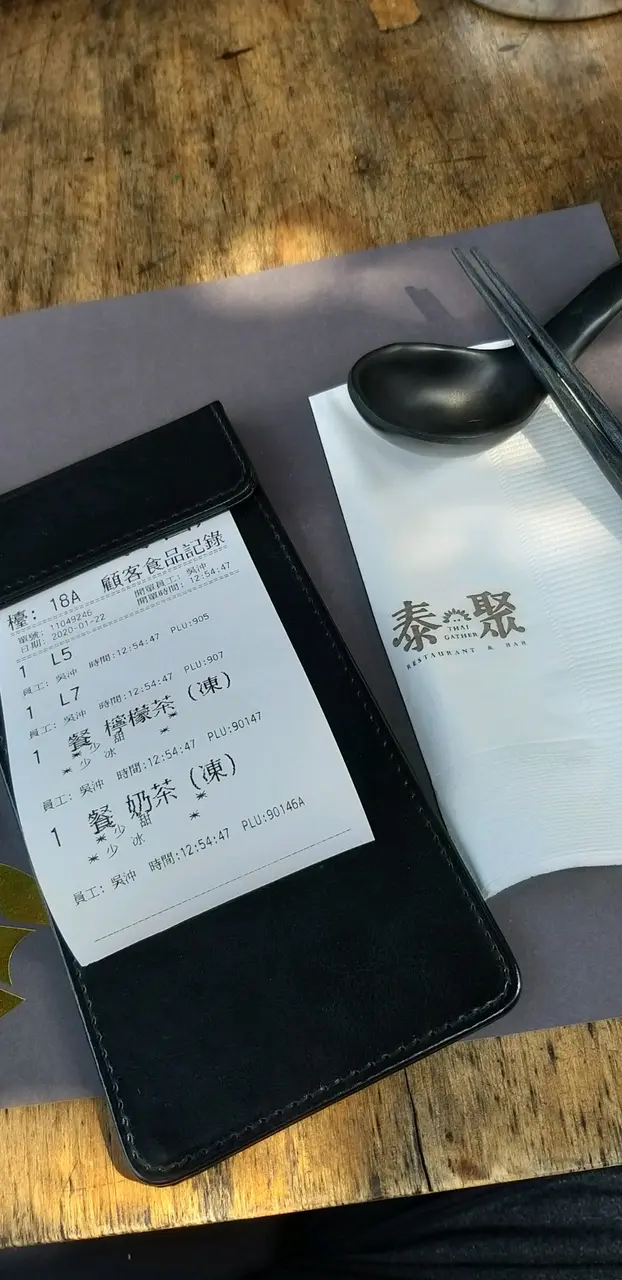 顧客食品記錄
檯: 18A
單號: 11049246
開單員工: 吳沖
日期: 2020-01-22
開單時間: 12:54:47
1 L5
員工: 吳沖 時間:12:54:47 PLU:905
1 L7
員工: 吳沖 時間:12:54:47 PLU:907
1 餐 檸檬茶 (凍)
*少 甜 *
*少 冰 *
員工: 吳沖 時間:12:54:47 PLU:90147
1 餐 奶茶 (凍)
*少 甜 *
*少 冰 *
員工: 吳沖 時間:12:54:47 PLU:90146A
泰聚
THAI
GATHER
RESTAURANT & BAR